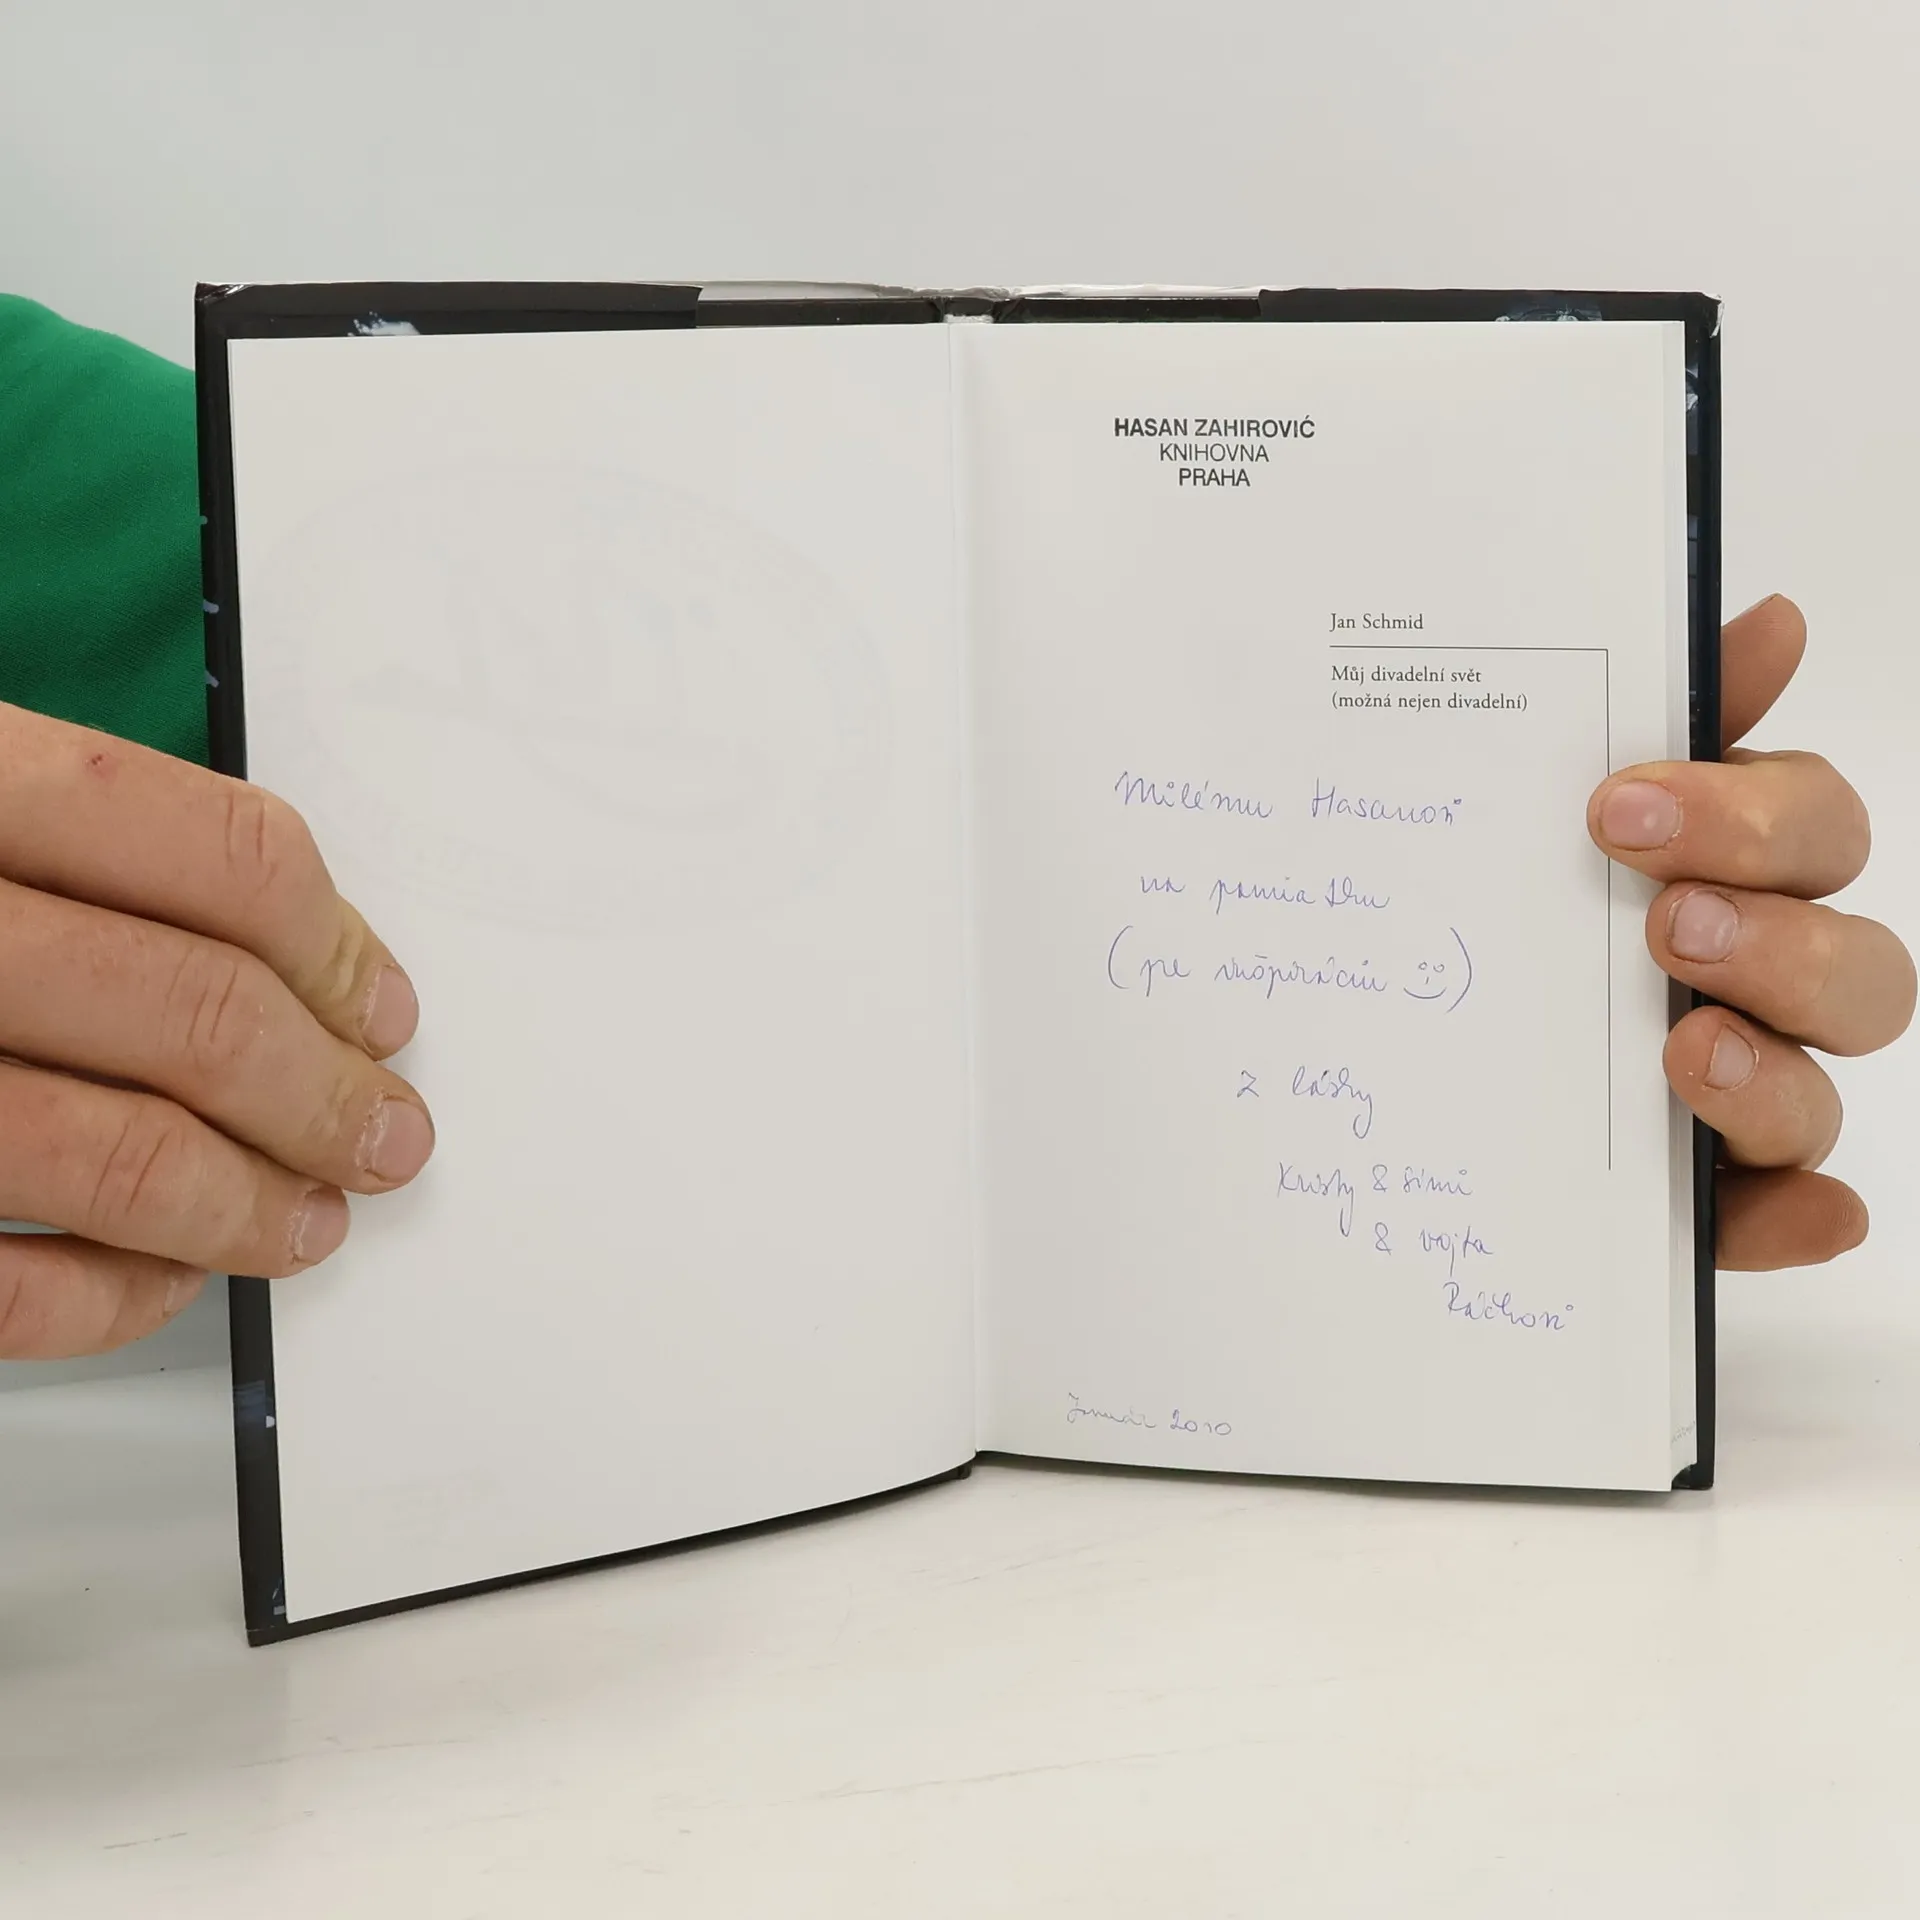 HASAN ZAHIROVIĆ
KNIHOVNA
PRAHA
Jan Schmid
Můj divadelní svět
(možná nejen divadelní)
Milému Hasanovi
na pamiatku
(pre inšpiráciu)
z lásky
Kristy & Simi
& Vojta
Január 2010